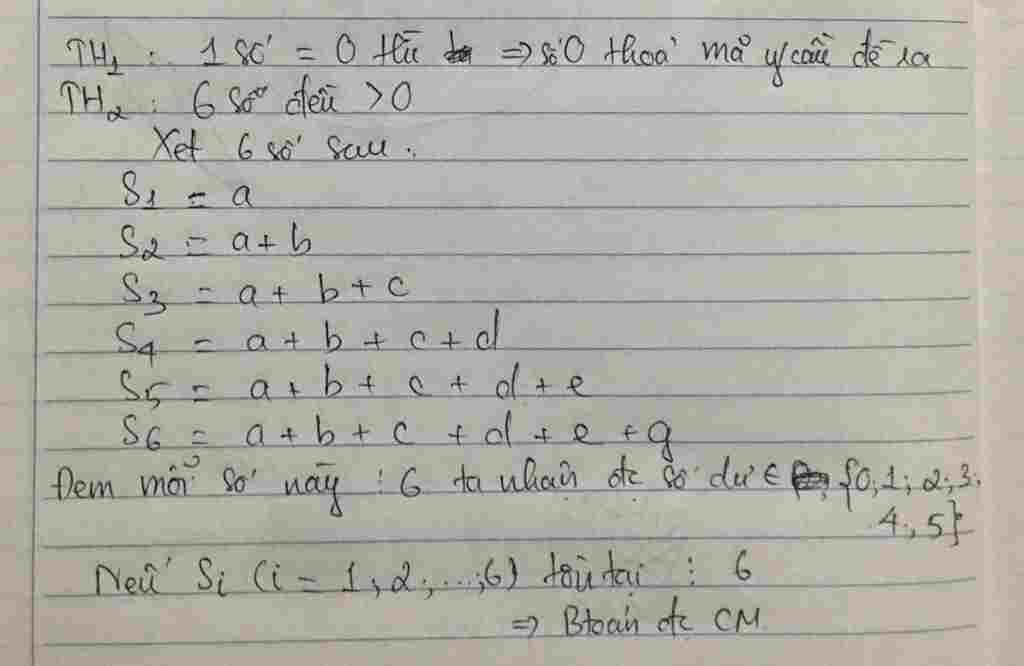 TH1 : 1 số = 0 thì => số 0 thoả mả y/cầu đề ra
TH2 : 6 số đều > 0
Xét 6 số sau.
S1 = a
S2 = a + b
S3 = a + b + c
S4 = a + b + c + d
S5 = a + b + c + d + e
S6 = a + b + c + d + e + g
Đem mỗi số này : 6 ta nhận đc số dư ∈ {0; 1; 2; 3;
4; 5}
Nếu Si (i = 1, 2, ..., 6) tồn tại : 6
=> Btoán đc CM